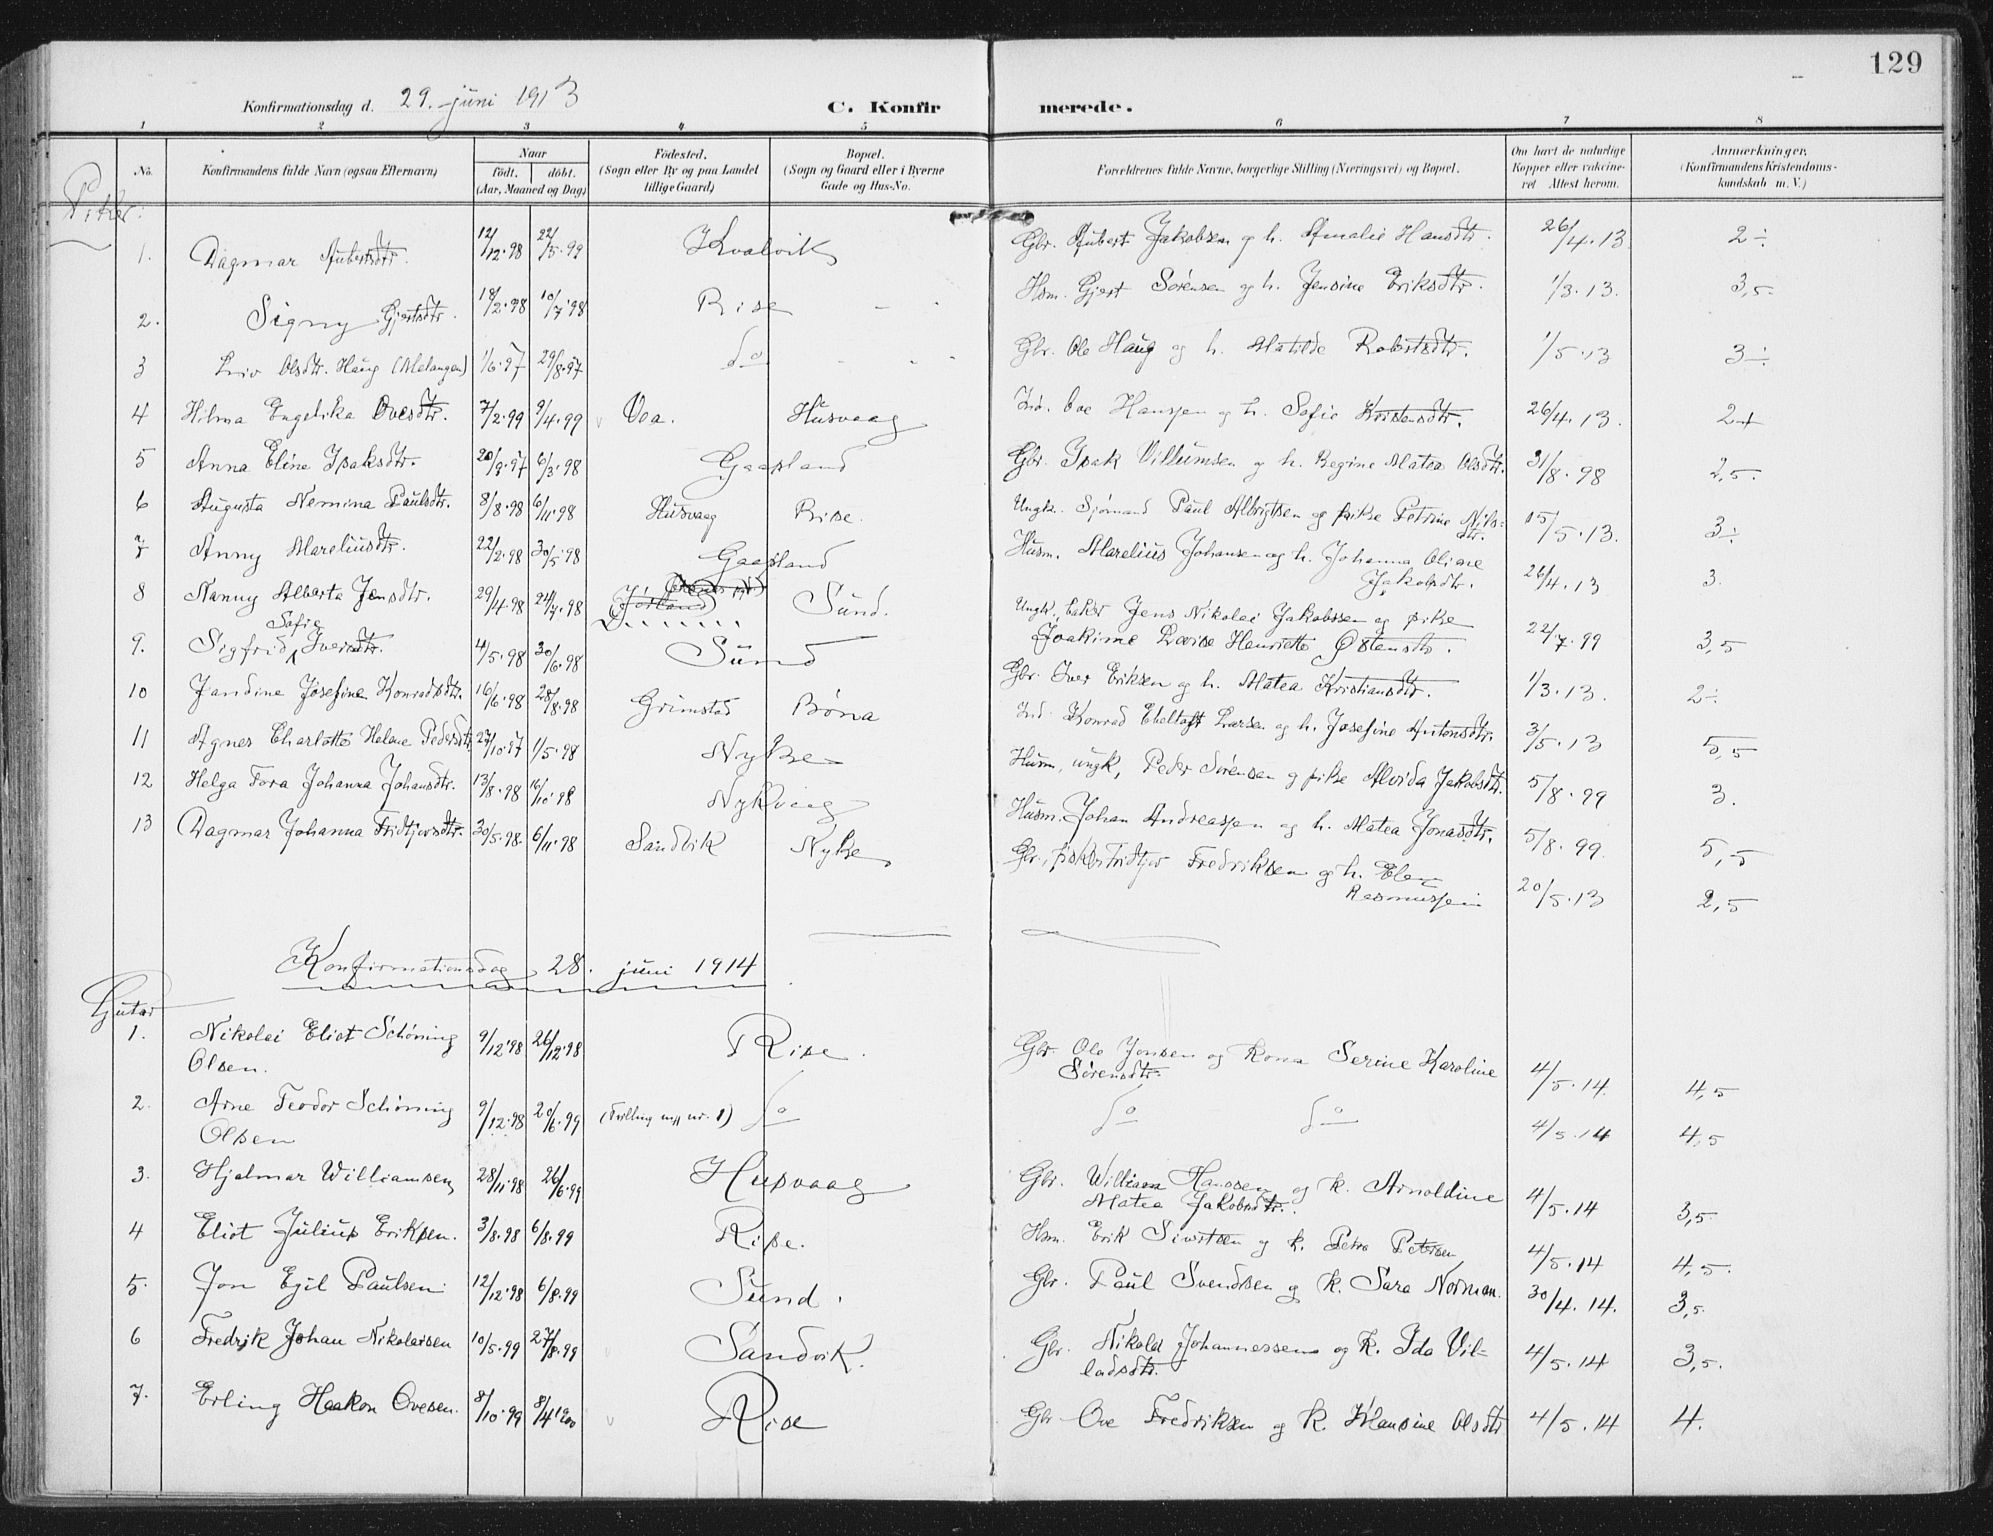 129
Konfirmationsdag d. 29. juni 1913 C. Konfirmerede.
1 2 3 4 5 6 7 8
No. Konfirmandens fulde Navn (ogsaa Efternavn) Naar født. døbt. (Aar, Maaned og Dag) Fødested. (Sogn eller By og paa Landet tillige Gaard) Bopæl. (Sogn og Gaard eller i Byerne Gade og Hus-No. Forældrenes fulde Navne, borgerlige Stilling (Næringsvei) og Bopæl. Om havt de naturlige Kopper eller vakcineret. Attest herom. Anmærkninger. (Konfirmandens Kristendomskundskab m. V.)
1. Dagmar 12/12.98 22/5.99 Kvalvik Gbr. Jakobsen og h. Amalie Hansdtr. 26/4.13. 2÷
2. Signy Gjertsdtr. 18/2.98 10/7.98 Rise Hsm. Gjert Sørensen og h. Jensine Eriksdtr. 1/3.13. 3,5.
3 Liv Olsdtr. Haug (Melangen) 1/6.97 29/8.97 do Gbr. Ole Haug og h. Matilde Robertsdtr. 1/5.13 3÷
4 Hilma Engelika Ovesdtr. 7/2.99 9/4.99 Vea. Husvaag Ind. Ove Hanssen og h. Sofie Kristensdtr. 26/4.13. 2+
5 Anna Eline Isaksdtr. 20/9.97 6/3.98 Gaasland Gbr. Isak Villumsen og h. Regine Matea Olsdtr. 31/8.98 2,5.
6 Augusta Nemina Paulsdtr. 8/8.98 6/11.98 Husvaag Rise. Ungk. Sjømand Paul Albrigtsen og pike Petrine Nils=
dtr. 15/5.13. 3÷
7 Anny Mareliusdtr. 22/2.98 30/5.98 Gaasland Husm. Marelius Johansen og h. Johanna Oline
Jakobsdtr. 26/4.13 3.
8 Nanny Alberta Jensdtr. 29/4.98 24/7.98 Jørland Sund. Ungk. baker Jens Nikolai Jakobssen og pike
Joakime Lovise Henriette Østensdtr. 22/7.99 3,5
9. Sigfrid Sofie Iversdtr. 4/5.98 30/6.98 Sund Gbr. Iver Eriksen og h. Matea Kristiansdtr. 1/3.13. 2÷
10 Jandine Josefine Konradsdtr. 16/6.98 28/8.98 Grimstad Bøna Ind. Konrad Ebeltoft Larsen og h. Josefine Antonsdtr. 3/5.13 5,5
11 Agnes Charlotte Helene Pedersdtr. 27/10.97 1/5.98 Nykse Husm, ungk, Peder Sørensen og pike Alvida Jakobsdtr. 5/8.99 3.
12 Helga Tora Johanna Johansdtr. 13/8.98 16/10.98 Nykvaag Husm. Johan Andreassen og h. Matea Jonasdtr. 5/8.99. 5,5
13 Dagmar Johanna Fridtjovsdtr. 30/5.98. 6/11.98 Sandvik Nykse Gbr., fisker Fridtjov Fredriksen og h. Elen
Rasmussen 20/5.13 2,5
Konfirmationsdag 28. juni 1914
Gutar
1. Nikolai Eliot Schøning
Olsen. 9/12.98 26/12.98 Rise. Gbr. Ole Jonsen og kona Serine Karoline
Sørensdtr. 4/5.14. 4,5
2. Arne Teodor Schøning
Olsen 9/12.98 20/6.99 (Tvilling m/ nr. 1) do do do 4/5.14 4,5
3. Hjalmar Williamsen 28/11.98 26/6.99 Husvaag Gbr. William Hanssen og k. Arnoldine
Matea Jakobsdtr. 4/5.14 3,5.
4 Eliot Julius Eriksen. 3/8.98 6/8.99 Rise. Hsm. Erik Sivertsen og k. Petra Petersen 4/5.14 4,5.
5. Jon Egil Paulsen 12/12.98 6/8.99 Sund. Gbr. Paul Svendsen og k. Sara Norman. 30/4.14. 3,5.
6 Fredrik Johan Nikolaisen 10/5.99 27/8.99 Sandvik. Gbr. Nikolai Johannessen og k. Ida Vil=
ladsdtr. 4/5.14 3,5.
7. Erling Haakon Ovesen. 8/10.99 8/4 1900 Rise Gbr Ove Fredriksen og k. Hansine Olsdtr 4/5.14 4.